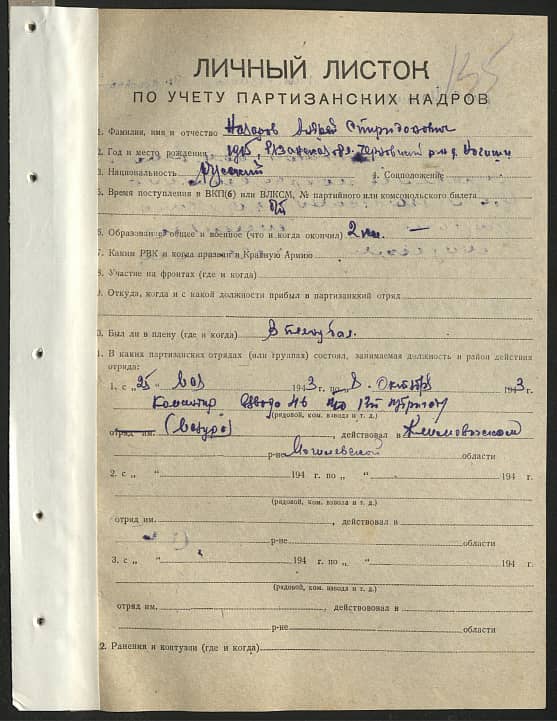 135
ЛИЧНЫЙ ЛИСТОК
ПО УЧЕТУ ПАРТИЗАНСКИХ КАДРОВ
1. Фамилия, имя и отчество Назаров Андрей Спиридонович
2. Год и место рождения 1915, Рязанская обл.
3. Национальность русский 4. Соцположение
5. Время поступления в ВКП(б) или ВЛКСМ, № партийного или комсомольского билета
б/п
6. Образование общее и военное (что и когда окончил) 2 кл. —
7. Каким РВК и когда призван в Красную Армию
8. Участие на фронтах (где и когда)
9. Откуда, когда и с какой должности прибыл в партизанский отряд
0. Был ли в плену (где и когда) В плену был.
1. В каких партизанских отрядах (или группах) состоял, занимаемая должность и район действия
отряда:
1. с „25 1943 г. по „8. Октября 1943 г.
Командир взвода
(рядовой, ком. взвода и т. д.)
отряд им. , действовал в Климовичском
р-не Могилевской области
2. с „ “ 194 г. по „ “ 194 г.
(рядовой, ком. взвода и т. д.)
отряд им. , действовал в
р-не области
3. с „ “ 194 г. по „ “ 194 г.
(рядовой, ком. взвода и т. д.)
отряд им. , действововал в
р-не области
2. Ранения и контузии (где и когда)